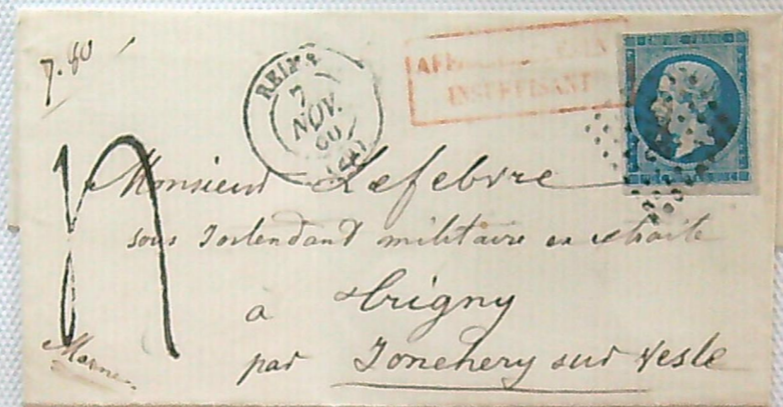 7.80
REIMS
7
NOV.
60
(49)
AFFRANCHISSEMENT
INSUFFISANT
Monsieur Lefebvre
sous Intendant militaire en retraite
a Brigny
par Jonchery sur Vesle
Marne